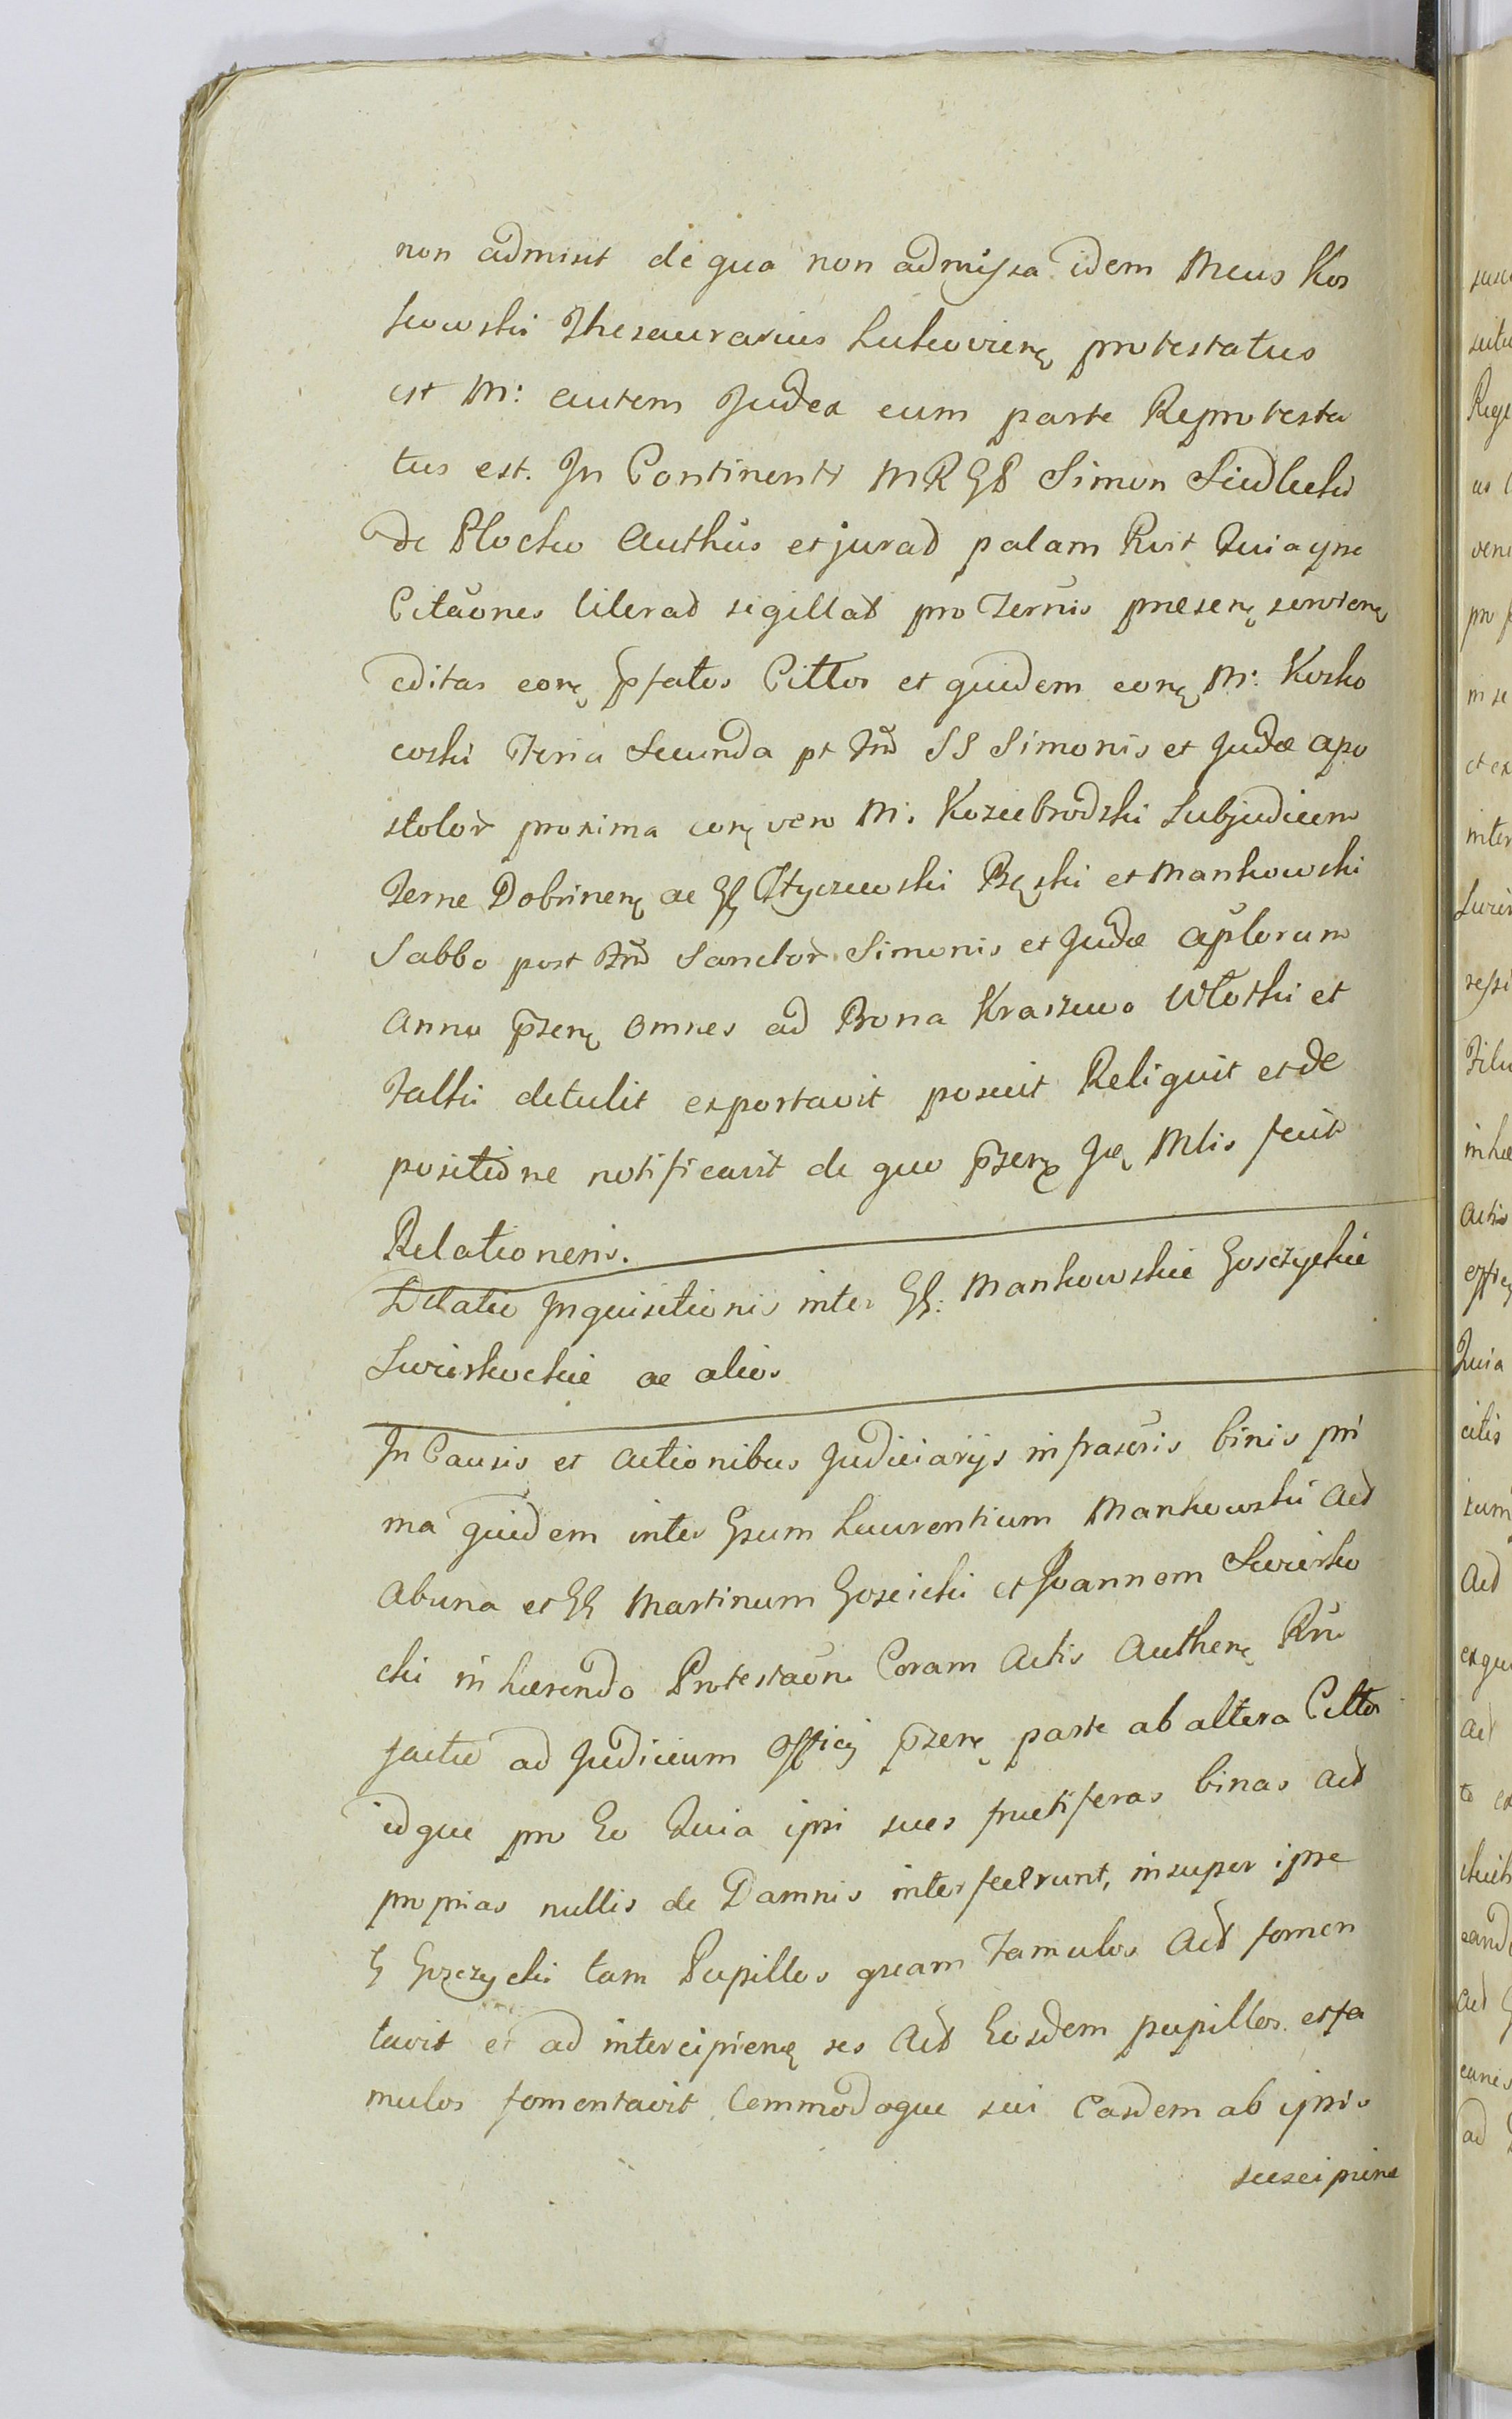 non admisit de qua non admissa idem Mcus Kos
sowski Thesaurarius Lukovienę protestatus
est M: autem Judex cum parte Reprotesta
tus est. In Continenti MRGD Simon Siudlecki
de Plocko Authūs et jurad palam Rvit Quia ipse
Citāones literad sigillad pro Ternis præsenę servienę
editas conę pfatos Cittos et quidem conę M: Kosko
coski Feria Secunda pt Fm̃ SS Simonis et Judæ Apo
stolor proxima conę vero M: Koziebrodzki Subjudicem
Terrae Dobrinenę ac GG Styczewski Bęski et Mankowski
Sabbo post Fm̃ Sanctor Simonis et Judæ Aplorum
Anno p̃zenę omnes ad Bona Kraszewo Włoski et
Falki detulit exportavit posuit Reliquit et de
positione notificavit de quo p̃zenę Ję Mtis fecit
Relationem.
Dilatio Inquisitionis inter GG: Mankowskie Gosczyckie
Swierskockie ac alios
In Causis et Actionibus Judiciarijs infrascr̃is binis pri
ma quidem inter Gsum Laurentium Mankowski Act
Ab una et GG Martinum Goscicki et Joannem Swiersko
cki inhærendo Protestaōni Coram Actis Authenę Rñi
factæ ad Judicium Officij p̃zenę parte ab altera Cittos
idque pro Eo Quia ipsi sues fructiferas binas Act
proprias nullis de Damnis interfecerunt, insuper ipse
G Gosczycki tam Pupillos quam Famulos Act fomen
tavit et ad intercipienę res Act Eosdem pupillos et fa
mulos fomentavit Commodoque sui Easdem ab ipsis
suscipiene